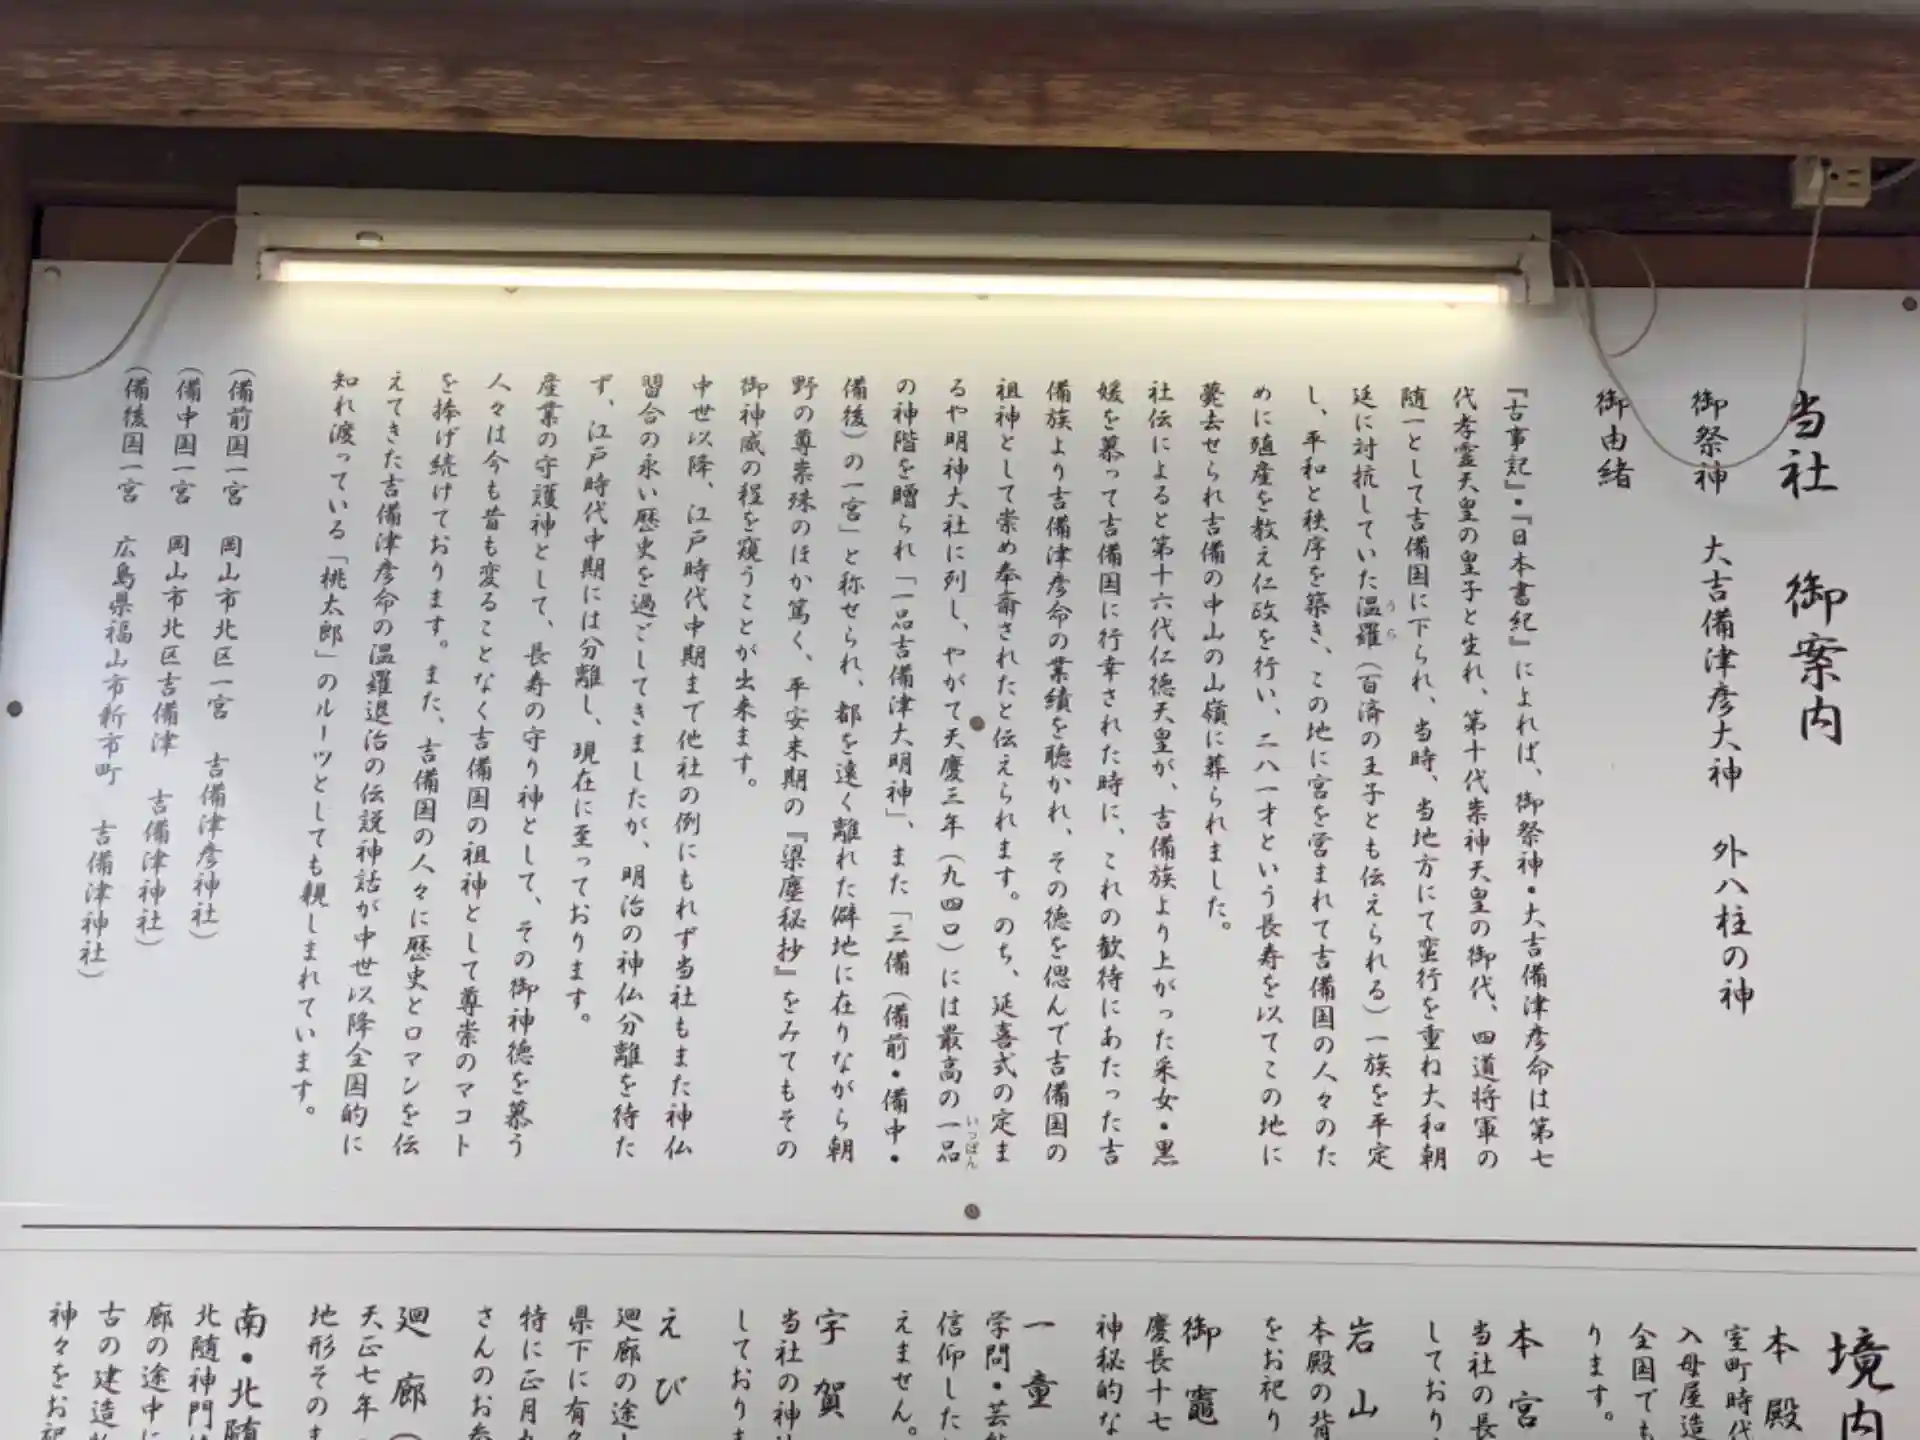 当社 御案内
御祭神 大吉備津彦大神 外八柱の神
御由緒
『古事記』・『日本書紀』によれば、御祭神・大吉備津彦命は第七
代孝霊天皇の皇子と生れ、第十代崇神天皇の御代、四道将軍の
随一として吉備国に下られ、当時、当地方にて蛮行を重ね大和朝
廷に対抗していた温羅（百済の王子とも伝えられる）一族を平定
うら
し、平和と秩序を築き、この地に宮を営まれて吉備国の人々のた
めに殖産を教え仁政を行い、二八一才という長寿を以てこの地に
薨去せられ吉備の中山の山嶺に葬られました。
社伝によると第十六代仁徳天皇が、吉備族より上がった采女・黒
媛を慕って吉備国に行幸された時に、これの歓待にあたった吉
備族より吉備津彦命の業績を聴かれ、その徳を偲んで吉備国の
祖神として崇め奉斎されたと伝えられます。のち、延喜式の定ま
るや明神大社に列し、やがて天慶三年（九四〇）には最高の一品
いっぽん
の神階を贈られ「一品吉備津大明神」、また「三備（備前・備中・
備後）の一宮」と称せられ、都を遠く離れた僻地に在りながら朝
野の尊崇殊のほか篤く、平安末期の『梁塵秘抄』をみてもその
御神威の程を窺うことが出来ます。
中世以降、江戸時代中期まで他社の例にもれず当社もまた神仏
習合の永い歴史を過ごしてきましたが、明治の神仏分離を待た
ず、江戸時代中期には分離し、現在に至っております。
産業の守護神として、長寿の守り神として、その御神徳を慕う
人々は今も昔も変ることなく吉備国の祖神として尊崇のマコト
を捧げ続けております。また、吉備国の人々に歴史とロマンを伝
えてきた吉備津彦命の温羅退治の伝説神話が中世以降全国的に
知れ渡っている「桃太郎」のルーツとしても親しまれています。
（備前国一宮 岡山市北区一宮 吉備津彦神社）
（備中国一宮 岡山市北区吉備津 吉備津神社）
（備後国一宮 広島県福山市新市町 吉備津神社）
境内
本殿
室町時代
入母屋造
全国でも
ります。
本宮
当社の長
しており
岩山
本殿の背
をお祀り
御竈
慶長十七
神秘的な
一童
学問・芸能
信仰した
えません。
宇賀
当社の神
しており
えび
廻廊の途
県下に有名
特に正月
さんのお
廻廊（
天正七年
地形そのま
南・北随
北随神門
廊の途中に
古の建造物
神々をお祀